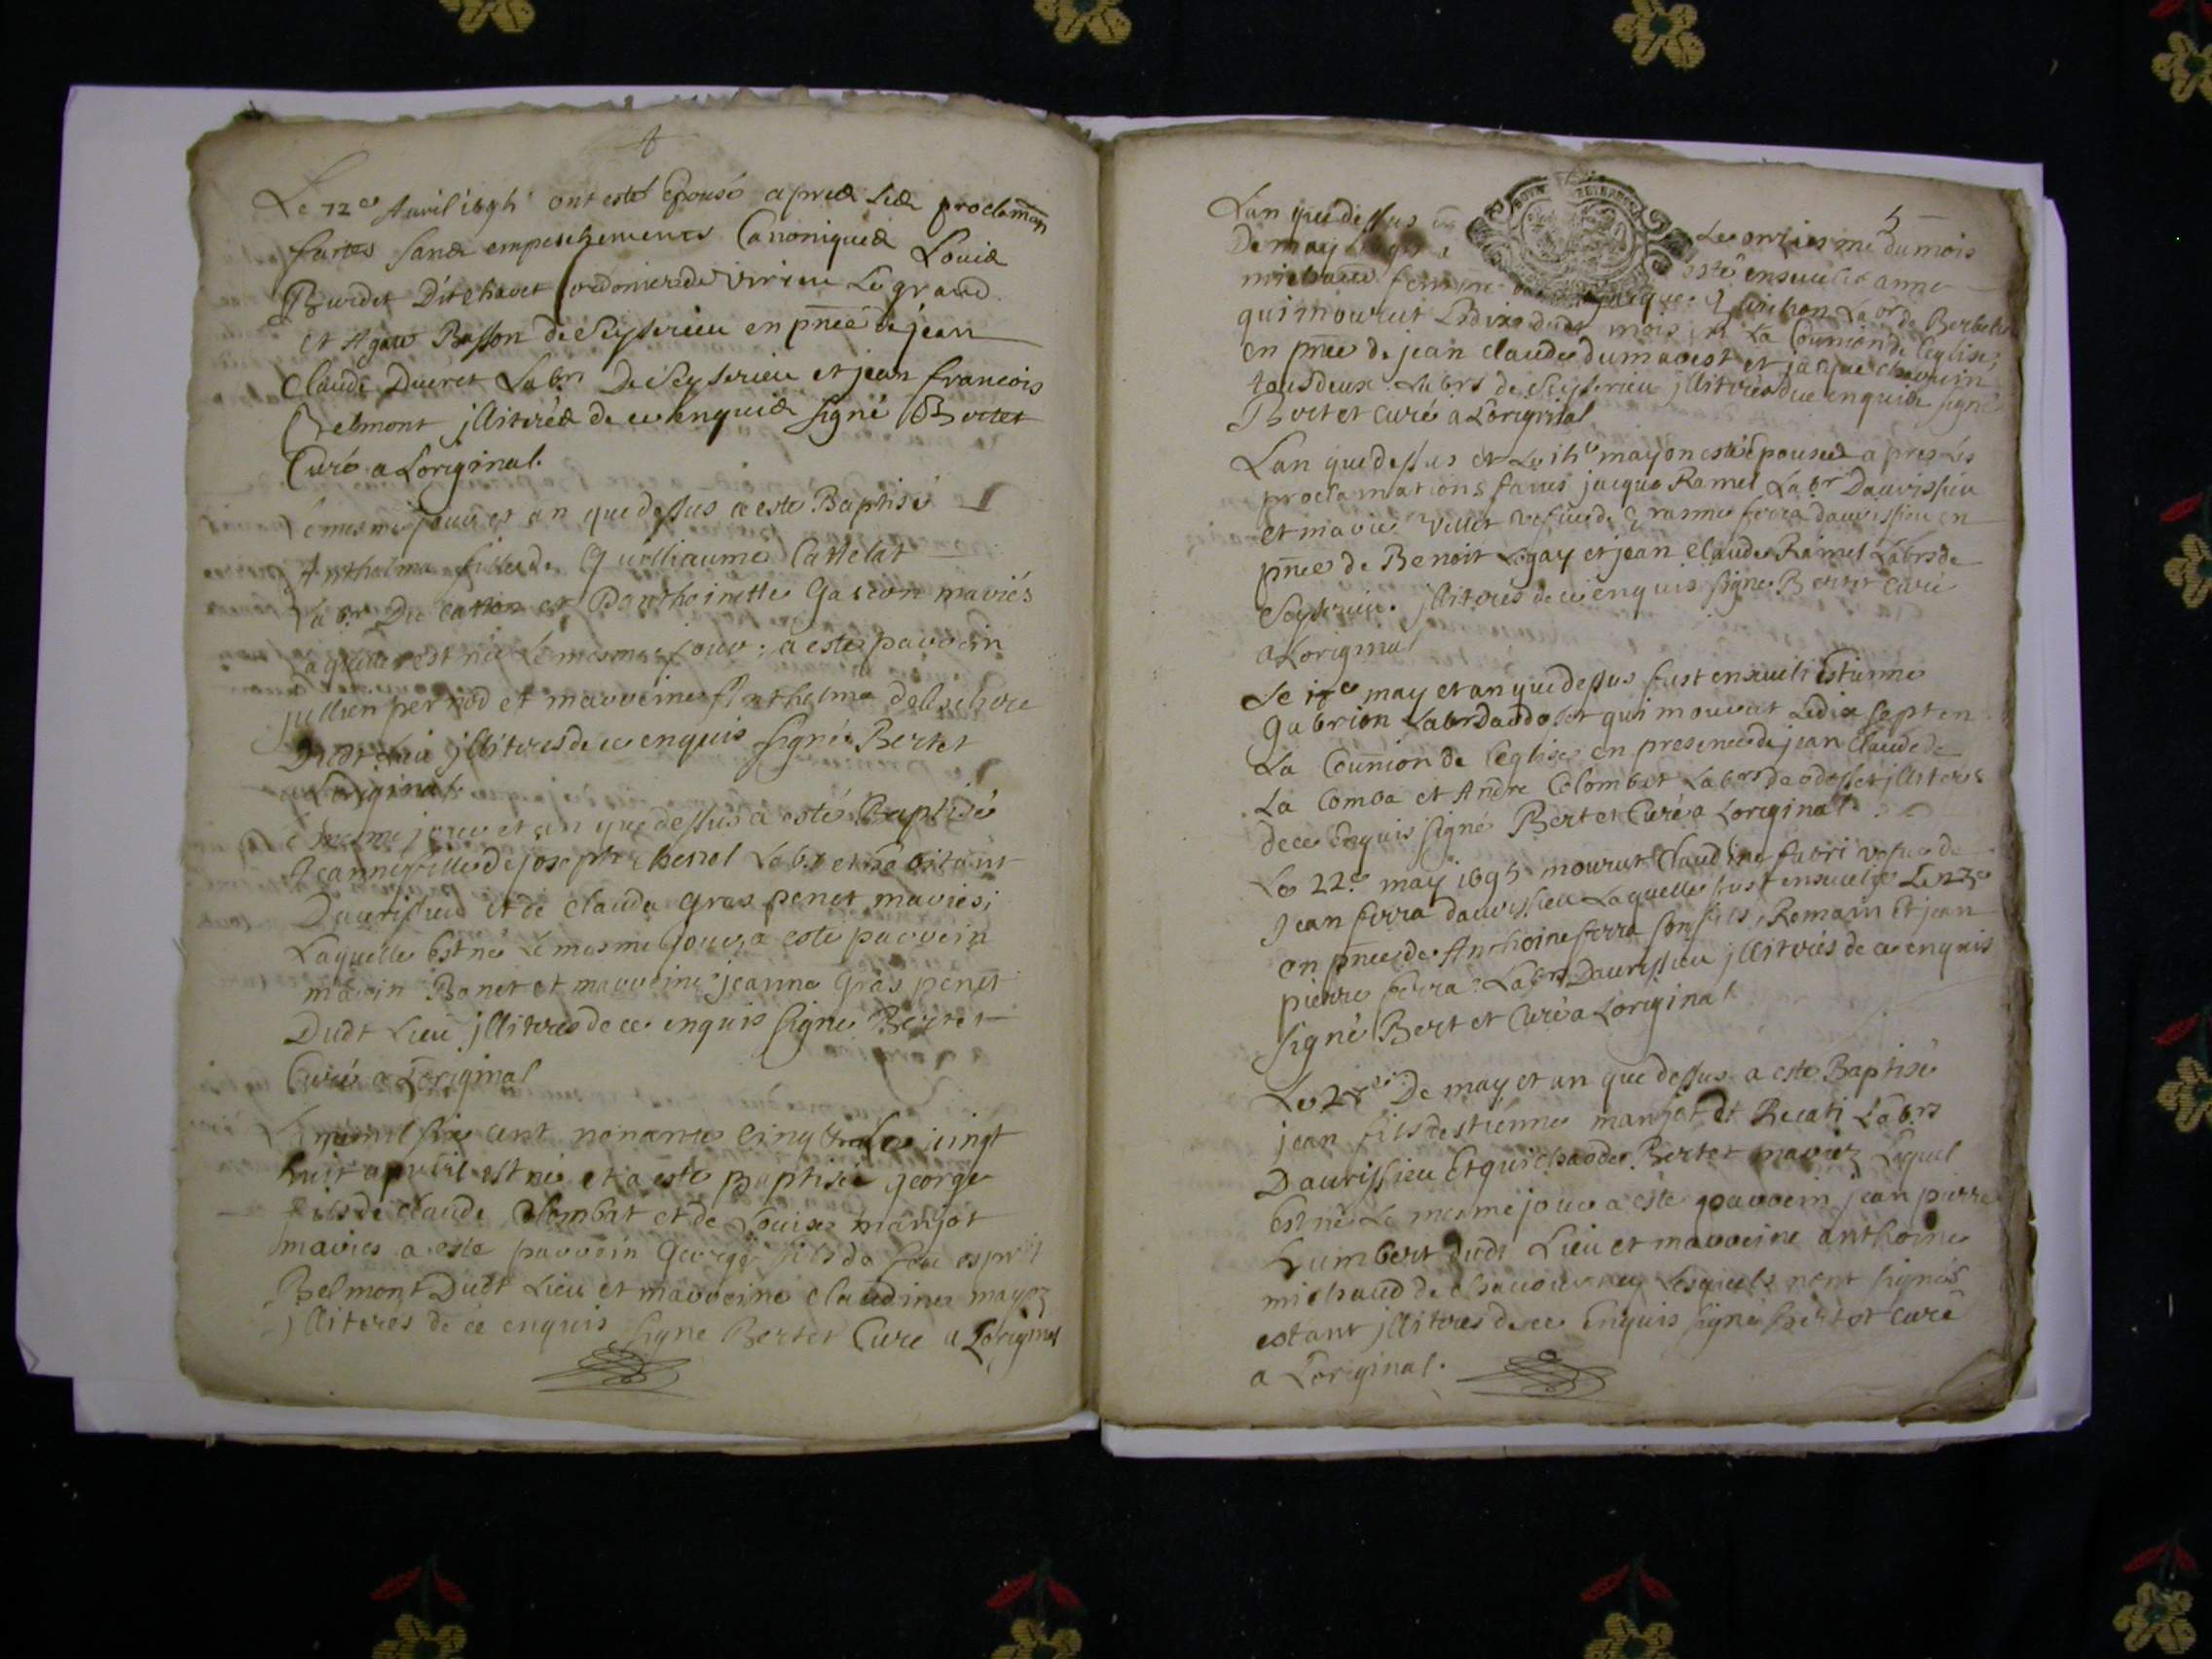 Le 12e Auril 1695 ont esté Epousé apres Les proclamaon
faites sans empeschements Canoniques Louis
Burdet Dit chavet Cordonier de Virieu Le grand
et Agate Basson de Seyserieu en pnce de jean
Claude Ducret Labr De Seyserieu et jean francois
Belmont jllitérés de ce enquis signé Bertet
Curé a Loriginal.
Le mesme jour et an que dessus a este Baptisé
Anthelma fille de Guilliaume Cattelat
Labr Du catton et Panthoinette Gascon mariés
laquelle est née Le mesme jour; a este parrein
jullien pernod et marreine Anthelma
Dudt Lieu jllitérés de ce enquis signé Bertet
a Loriginal.
Le mesme jour et an que dessus a esté Baptisé
Jeanne fille de joseph Labr et habitant
Daurissieu et de Clauda gras penet mariés;
Laquelle Est née Le mesme jour, a esté parrein
marin Bonet et marreine jeanne gras penet
Dudt Lieu jllitérés de ce enquis signé Bertet
Curé a Loriginal
Lan mil six cent nonante Cinq et le vingt
huit apvril est né et a este Baptisé george
fils de claude Colombat et de Louise manjot
mariés a este parrein George fils de feu esprit
Belmont Dudt Lieu et marreine claudine
jllitérés de ce enquis signé Bertet Curé a Loriginal
5
Lan que dessus Le onziesme du mois
De may esté ensevelie anne
michaud femme jacque Labr de
qui mourut Ledix dudt mois en La Counion de leglise;
en pnce de jean claude dumarest et jaque
tous deux Labrs de Seyserieu jllitérés de ce enquis signé
Bertet Curé a Loriginal
Lan que dessus et Le 15e may on esté épousés apres les
proclamations faites jacque Ramel Labr Daurissieu
et marie Vullet vefue de ferra daurissieu en
pnce de Benoit Legay et jean Claude Ramel Labrs de
Seyserieu. jllitérés de ce enquis signé Bertet Curé
a Loriginal
Le 17e may et an que dessus fust enseveli Estienne
Gabrion Labr qui mourut Ledix sept en
La Counion de leglise en presence de jean Claude de
La Comba et André Colombet Labrs jllitérés
de ce enquis signé Bertet Curé a Loriginal.
Le 22.e may 1695 mourut Claudine fabri vefue de
Jean ferra daurissieu Laquelle fust ensevelie Le 23e
en pnce de Anthoine ferra son fils, Romain Et jean
pierre ferra Labrs Daurissieu jllitérés de ce enquis
signé Bertet Curé a Loriginal
Le 28e De may et an que dessus a este Baptisé
jean fils destienne manjot dt Recati Labr
Daurissieu Et Bertet mariez Lequel
Est né Le mesme jour a este parrein jean pierre
Humbert dudt Lieu et marreine anthoine
michaud de Lesquels nont signés
estant jllitérés de ce enquis signé Bertet Curé
a Loriginal.